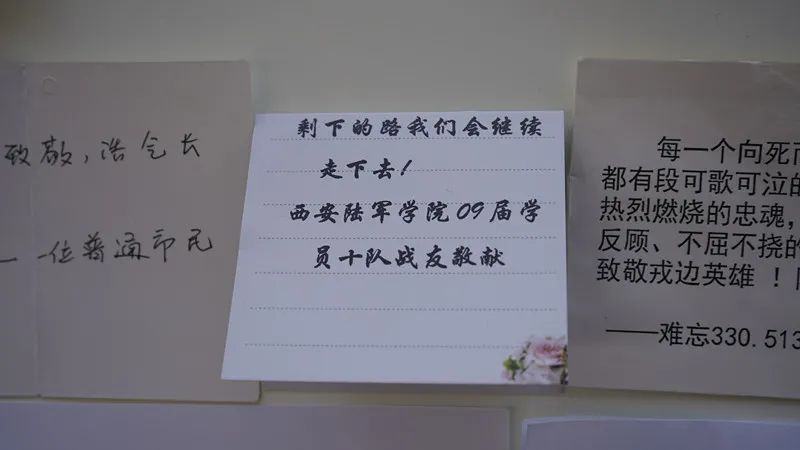 致敬，浩气长
一位普通市民
剩下的路我们会继续
走下去！
西安陆军学院09届学
员十队战友敬献
每一个向死而
都有段可歌可泣的
热烈燃烧的忠魂，
反顾、不屈不挠的
致敬戎边英雄！
——难忘330.513